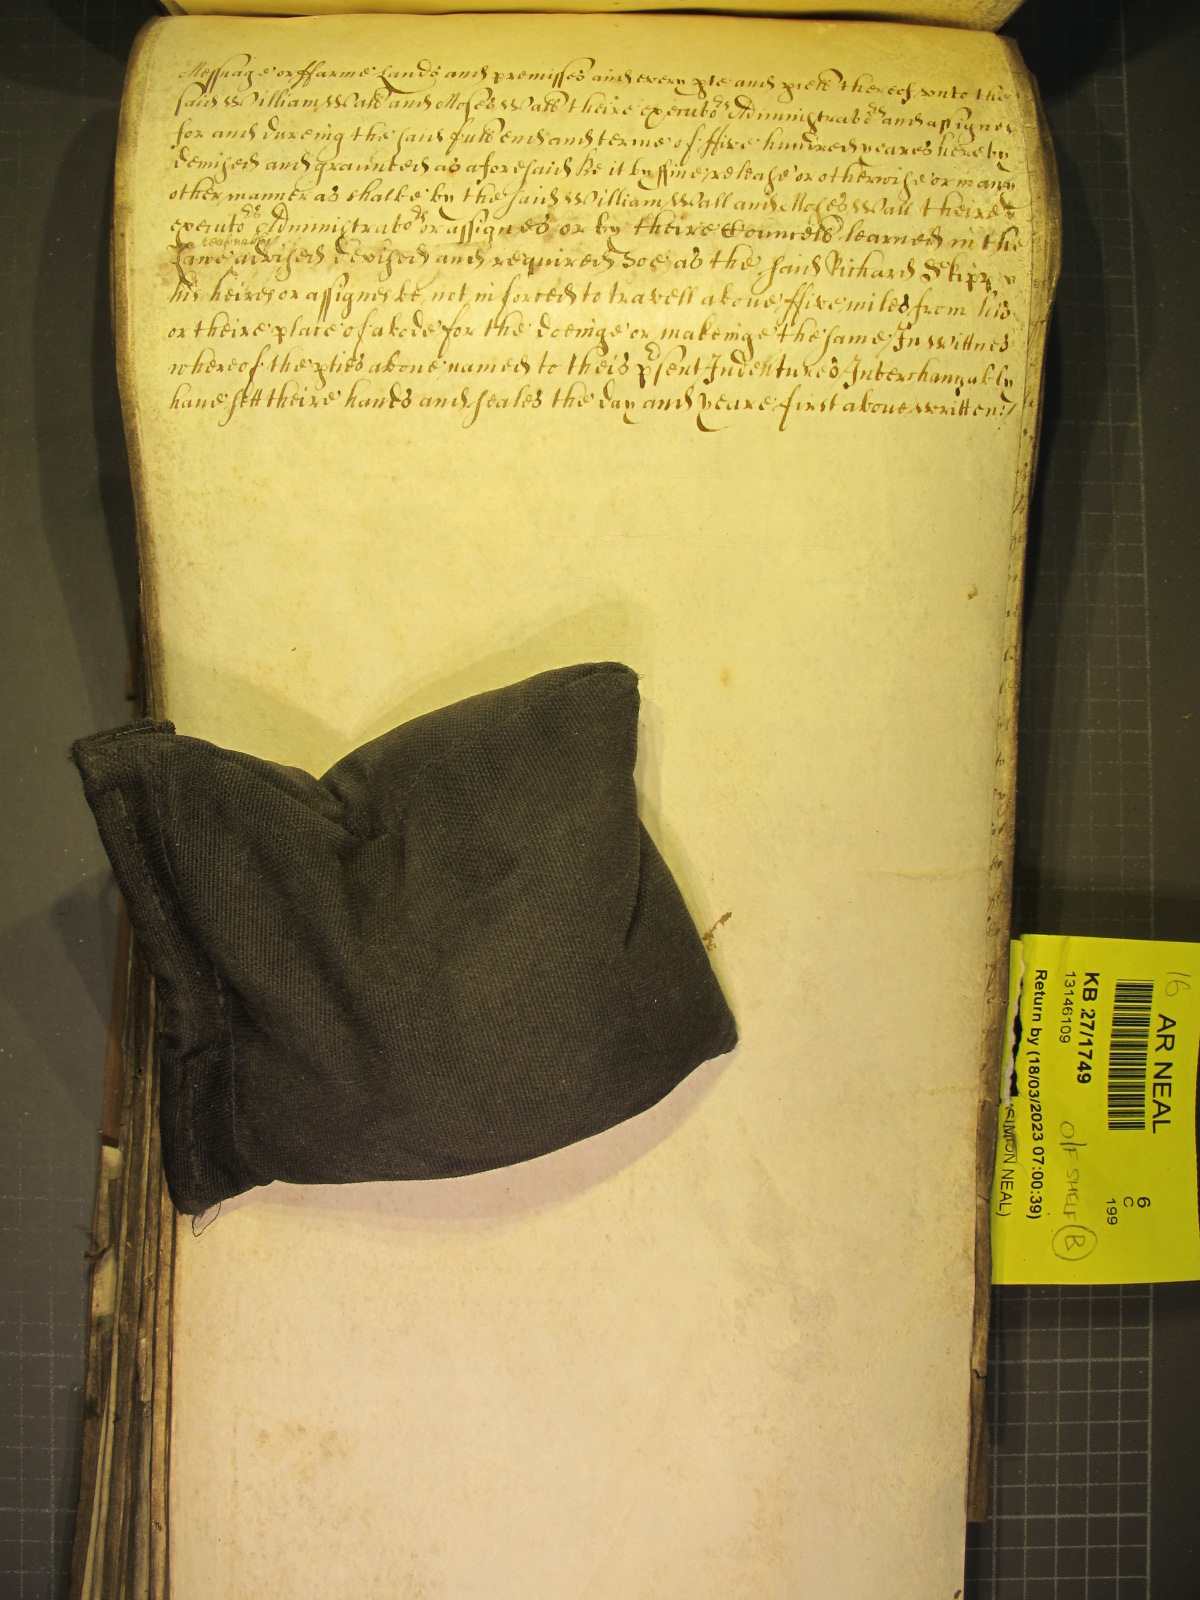 Messuage or ffarme Lands and premisses and every pte and pcell thereof unto the
said William Wall and Moses Wall theire executors Administrators and assignes
for and dureing the said full end and terme of ffive hundred yeares hereby
demised and graunted as aforesaid Be it by ffine release or otherwise or in any
other manner as shalbe by the said William Wall and Moses Wall theire
executors Administrators or assignes or by theire Councell learned in the
reasonably
Lawe advised devised and required Soe as the said Richard Skipp
his heires or assignes be not inforced to travell above ffive miles from his
or theire place of abode for the doeinge or makeinge the same In wittnes
whereof the pties above named to theis psent Indentures Interchangably
have sett theire hands and seales the day and yeare first above written:/
16
AR NEAL
KB 27/1749
13146109
Return by (18/03/2023 07:00:39)
(SIMON NEAL)
O/F SHELF B
6
C
199